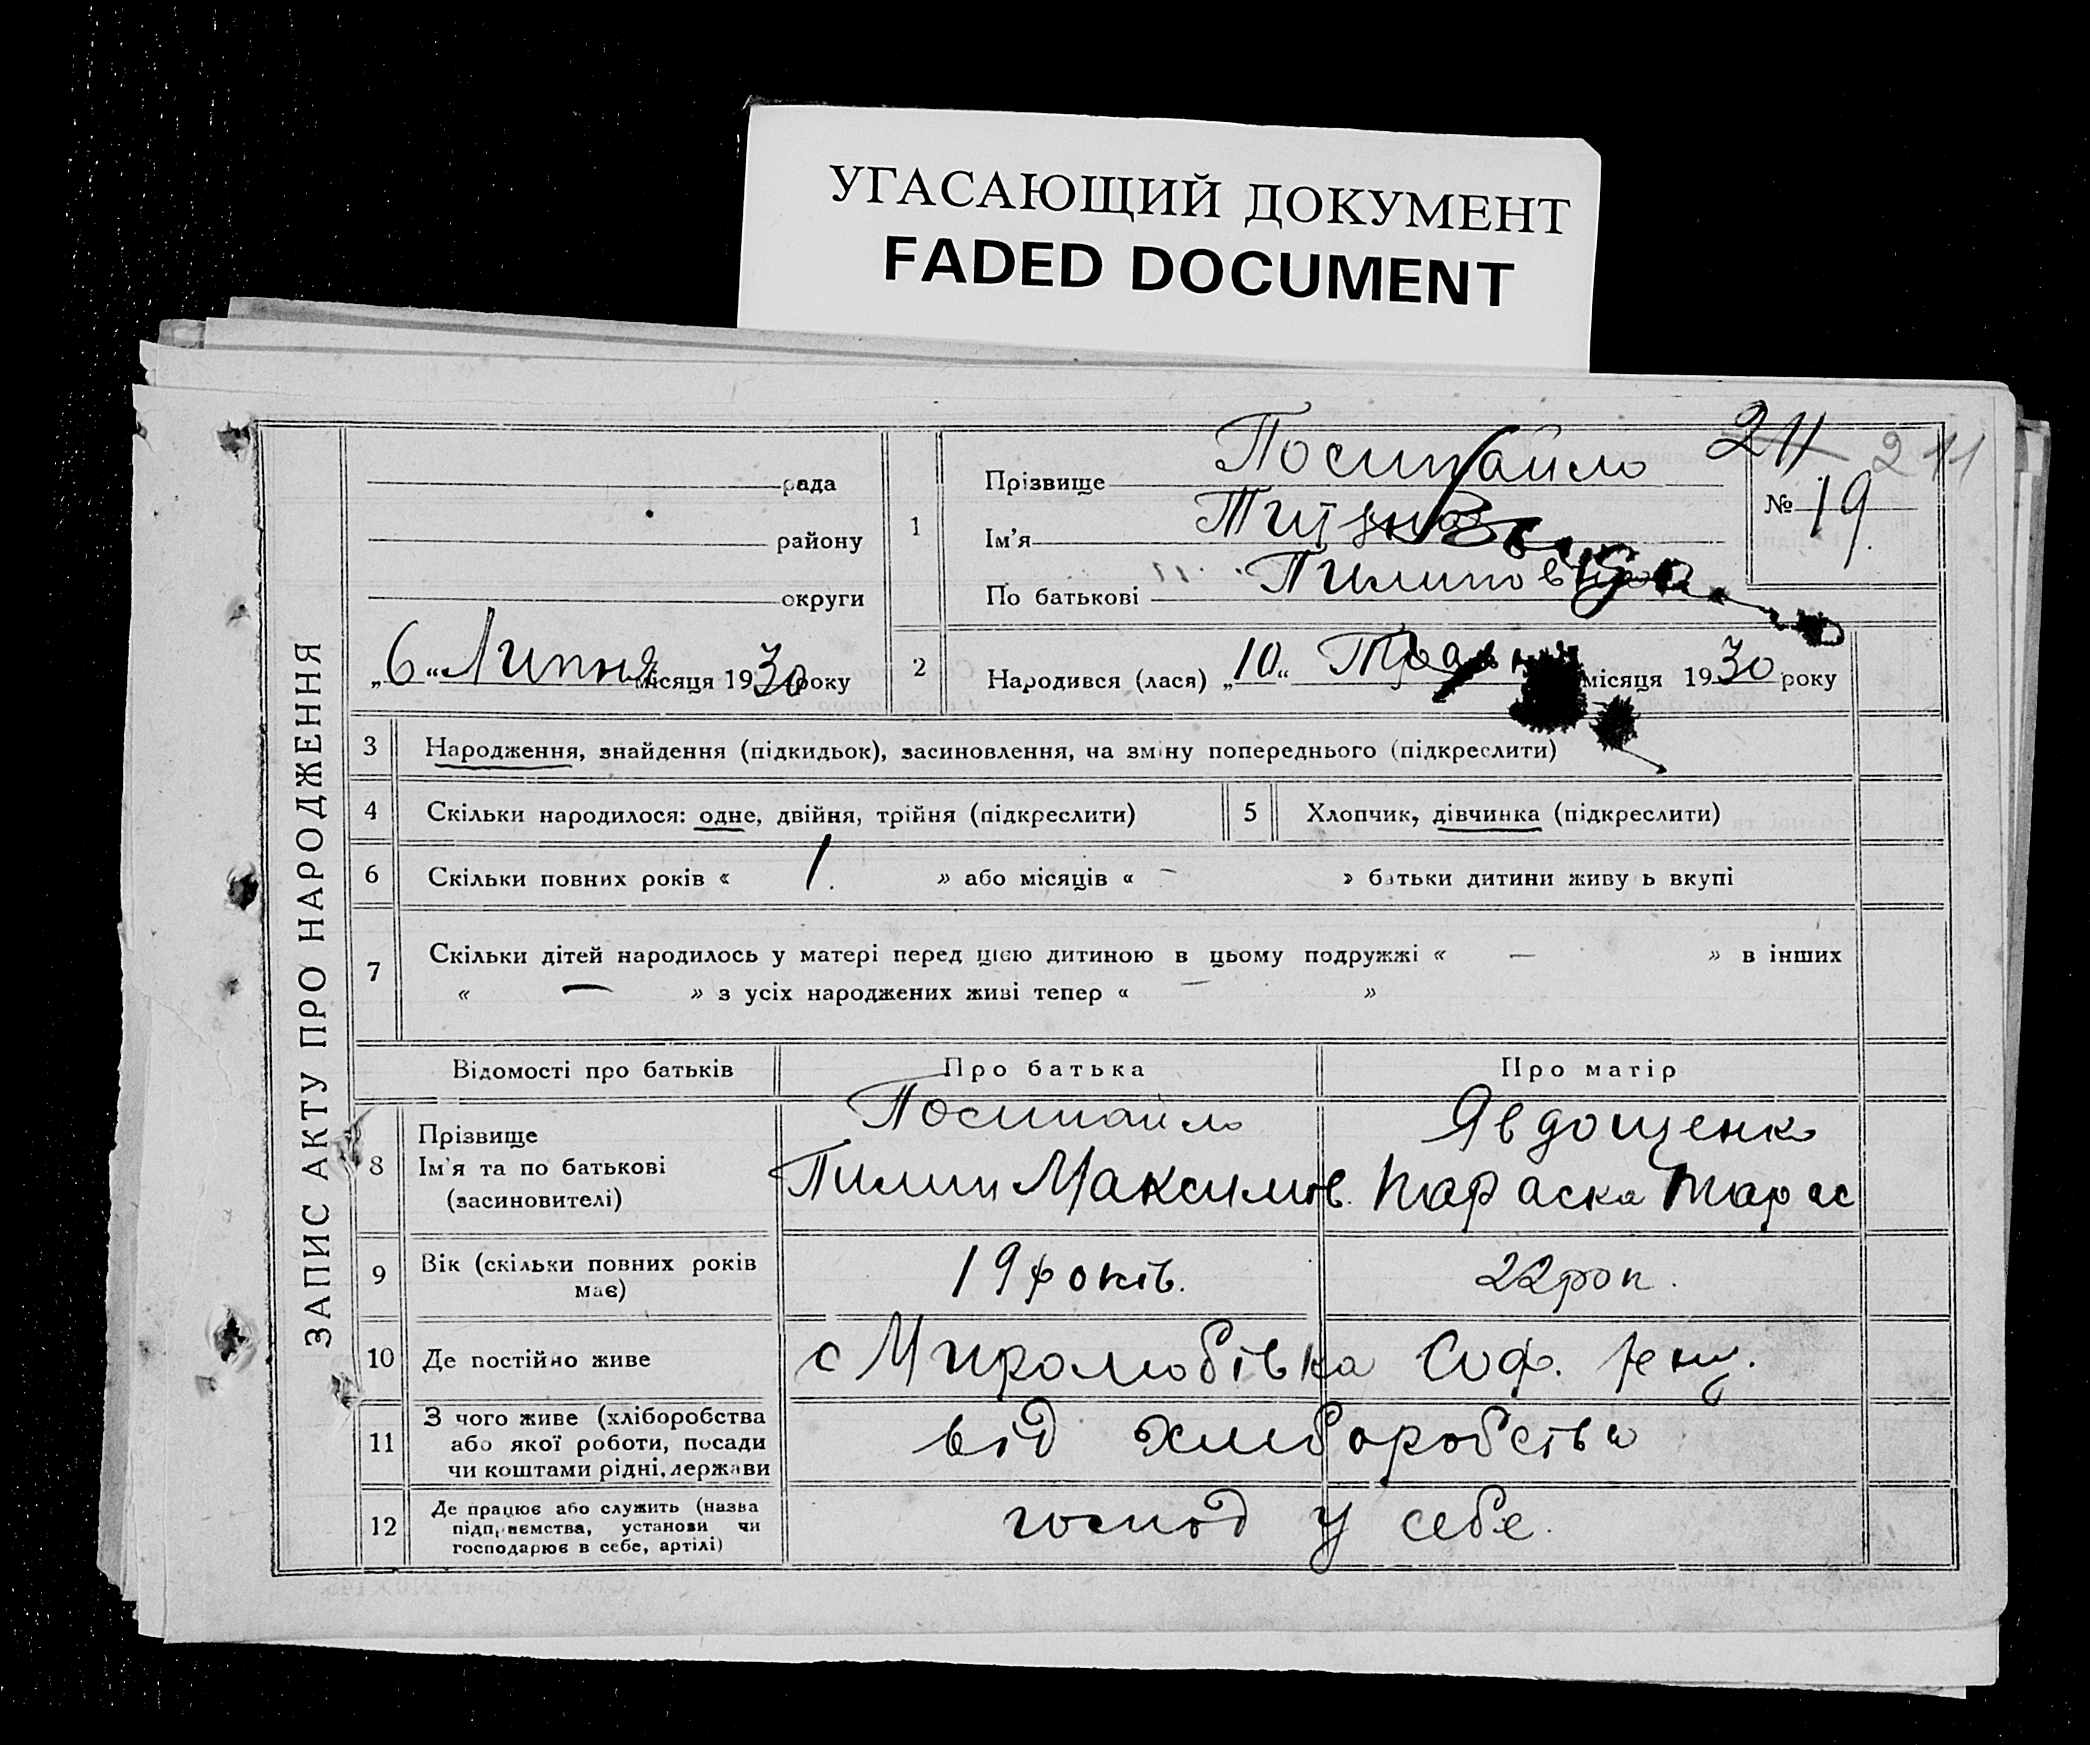 УГАСАЮЩИЙ ДОКУМЕНТ
FADED DOCUMENT
ЗАПИС АКТУ ПРО НАРОДЖЕННЯ
рада
району
округи
„6“ Липня місяця 1930 року
211 211
№ 19.
1
Прізвище Постпайло
Ім'я
По батькові
2
Народився (лася) „10“ місяця 1930 року
3 Народження, знайдення (підкидьок), засиновлення, на зміну попереднього (підкреслити)
4 Скільки народилося: одне, двійня, трійня (підкреслити) 5 Хлопчик, дівчинка (підкреслити)
6 Скільки повних років « 1. » або місяців « – » батьки дитини живуть вкупі
7 Скільки дітей народилось у матері перед цією дитиною в цьому подружжі « — » в інших
« — » з усіх народжених живі тепер « — »
Відомості про батьків Про батька Про матір
8 Прізвище
Ім'я та по батькові
(засиновителі)
Пилип Максимов.
Явдощенко
Параска Тарас
9 Вік (скільки повних років має) 19 років. 22 рок.
10 Де постійно живе с Миролюбівка Соф.
11 З чого живе (хліборобства
або якої роботи, посади
чи коштами рідні, держави
від хліборобства
12 Де працює або служить (назва
підприємства, установи чи
господарює в себе, артілі)
господ у себе.